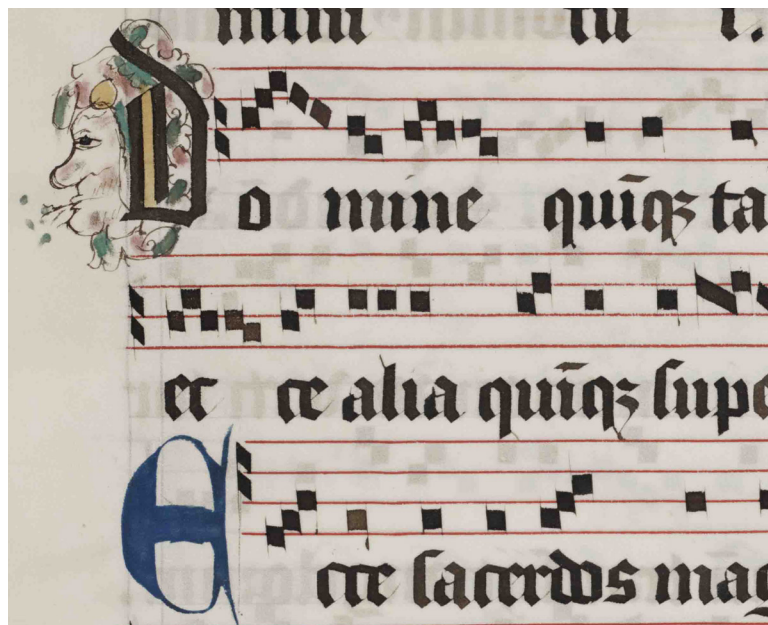 Do mine quiqꝫ ta
er ce alia quiqꝫ supe
Ecce sacerdos mag